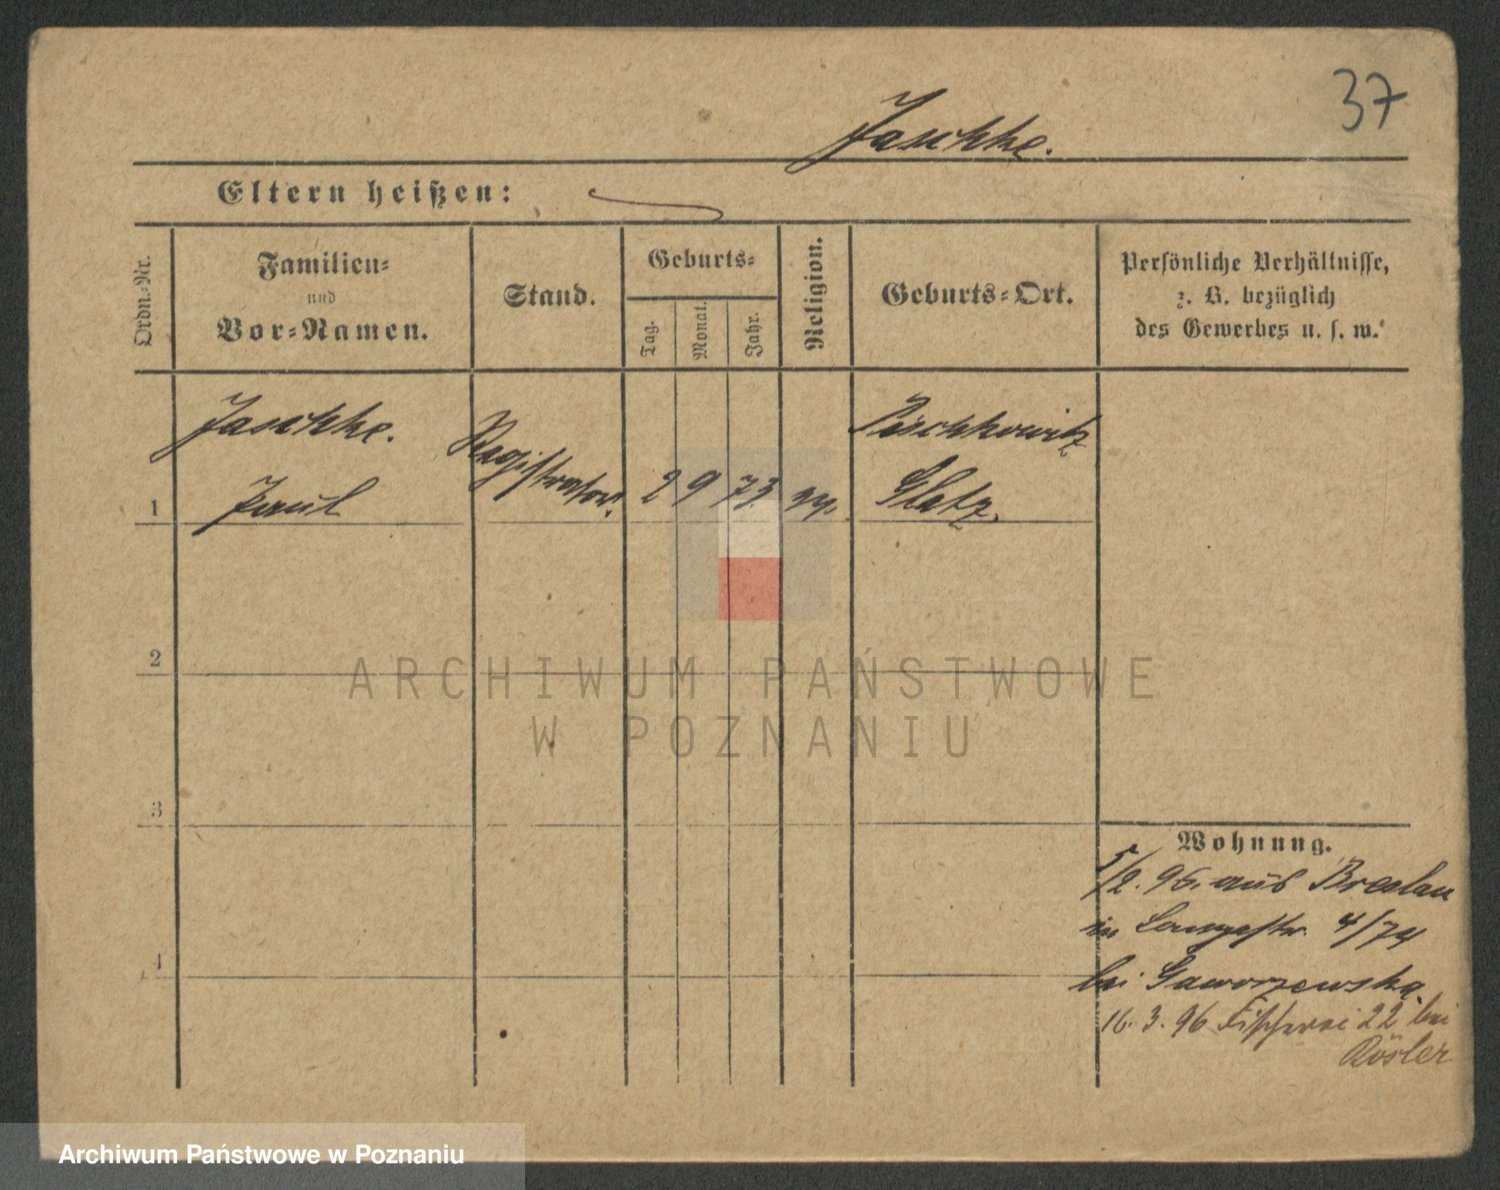 37
Jaschke.
Eltern heißen:
Ordn.-Nr.
Familien-
und
Vor-Namen.
Stand.
Geburts-
Tag.
Monat.
Jahr.
Religion.
Geburts-Ort.
Persönliche Verhältnisse,
z. B. bezüglich
des Gewerbes u. s. w.
Jaschke.
Paul
Registrator.
1
2 9 73.
Pischkowitz
Glatz.
2
ARCHIWUM PAŃSTWOWE
W POZNANIU
3
4
Wohnung.
5/2. 96. aus Breslau
in Langestr. 4/74
bei Gaworzewska.
16. 3. 96 Fischerei 22 bei
Rösler
Archiwum Państwowe w Poznaniu